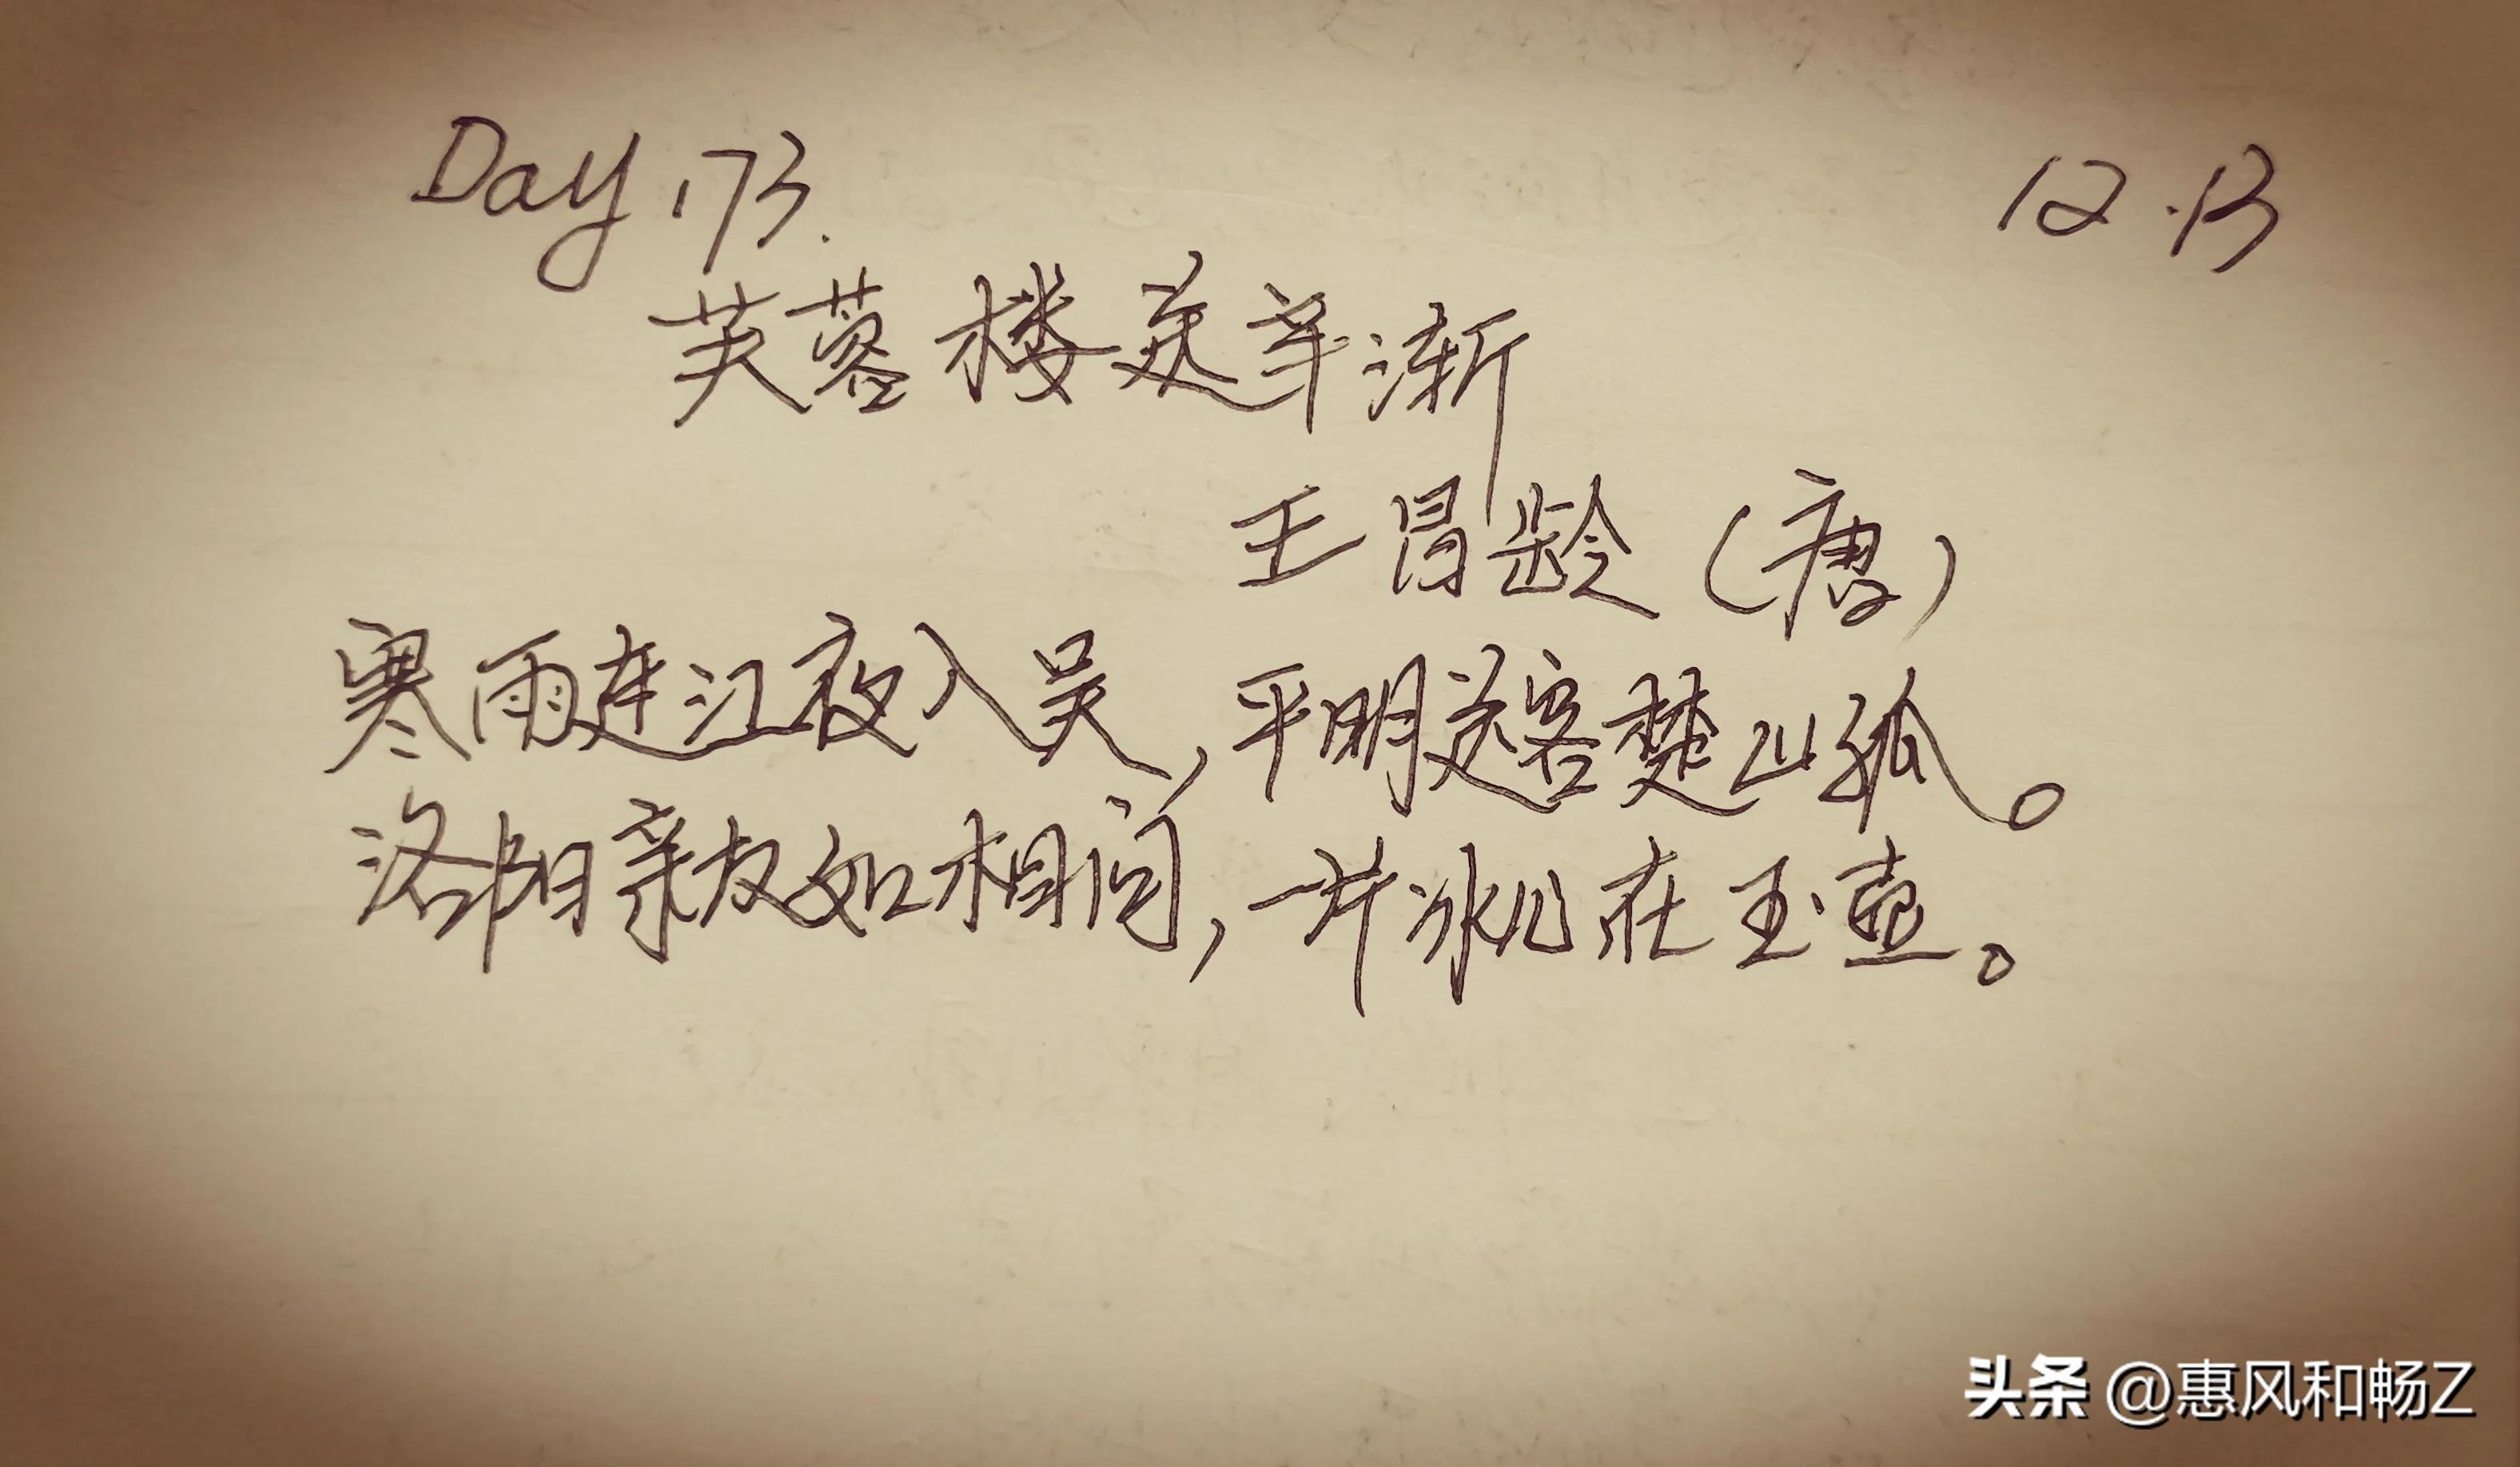 Day 173.
12.13
芙蓉楼送辛渐
王昌龄(唐)
寒雨连江夜入吴,平明送客楚山孤。
洛阳亲友如相问,一片冰心在玉壶。
头条 @惠风和畅Z